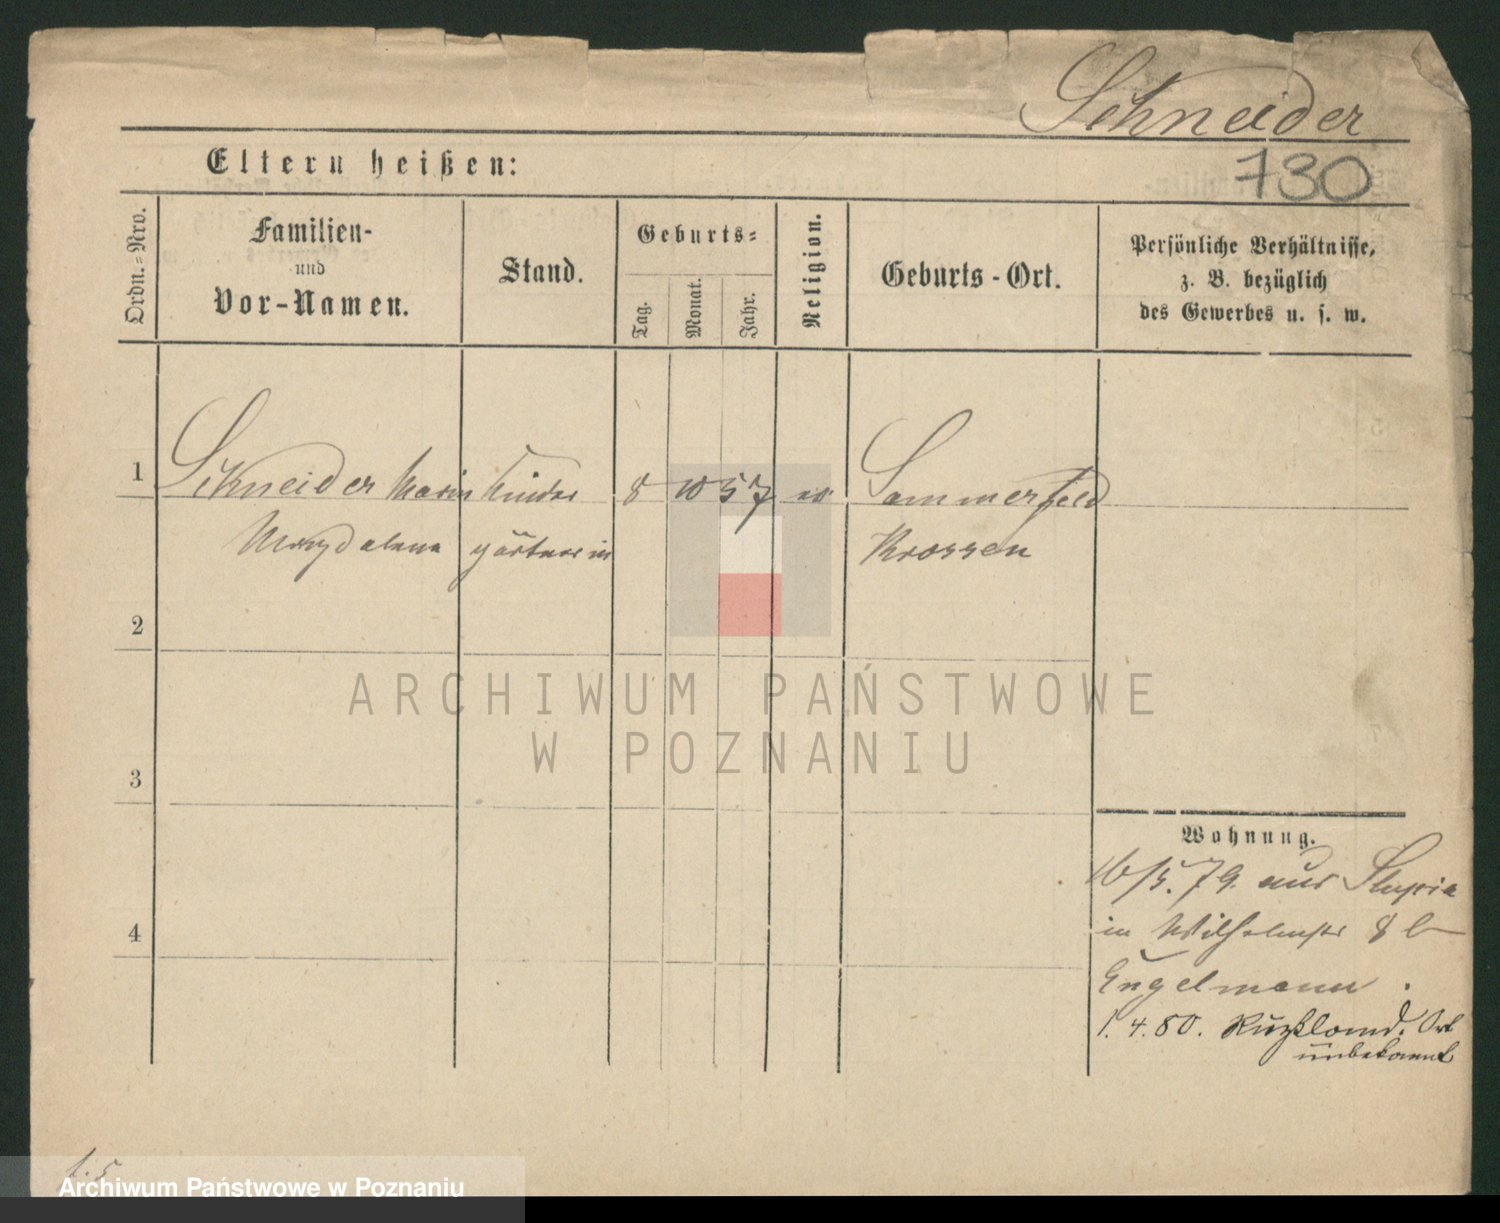 Schneider
Eltern heißen:
730
Ordn.=Nro.
Familien-
und
Vor-Namen.
Stand.
Geburts=
Tag.
Monat.
Jahr.
Religion.
Geburts-Ort.
Persönliche Verhältnisse,
z. B. bezüglich
des Gewerbes u. s. w.
1
Schneider Maria
Magdalena
Kinder
gärtnerin
8
10
57
ev
Sommerfeld
Krossen
2
3
4
ARCHIWUM PAŃSTWOWE
W POZNANIU
Wohnung.
16/5. 79. aus Slupia
in Wilhelmstr 8 b
Engelmann.
1. 4. 80. Rußland. Ort
unbekannt
Archiwum Państwowe w Poznaniu